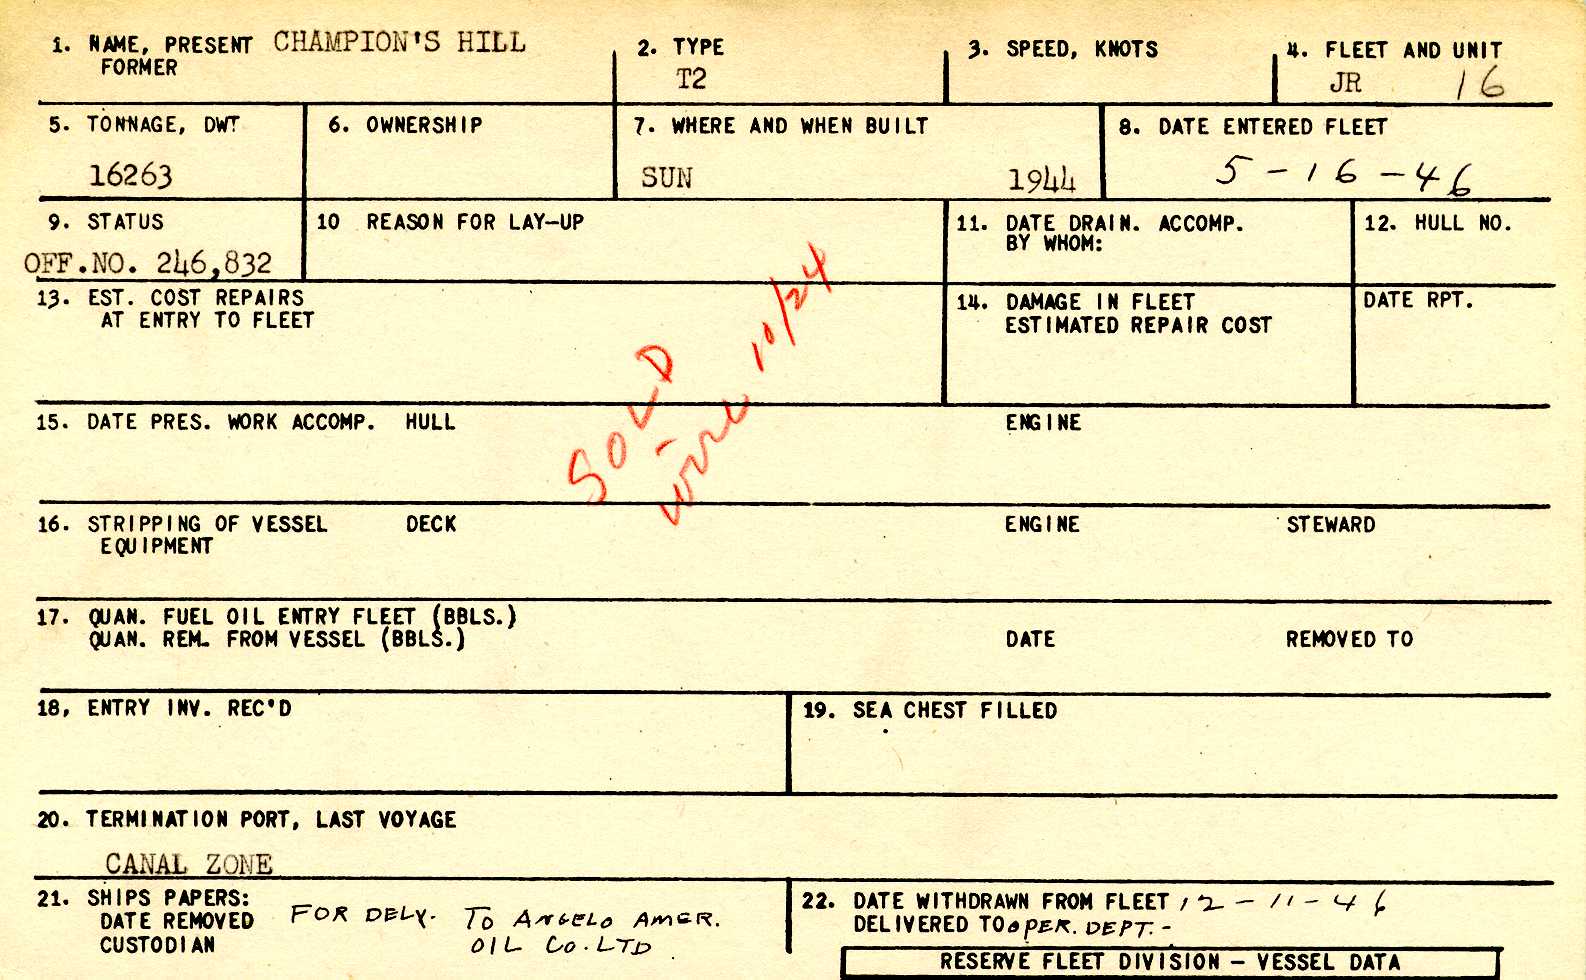 1. NAME, PRESENT CHAMPION'S HILL
FORMER
2. TYPE
T2
3. SPEED, KNOTS
4. FLEET AND UNIT
JR 16
5. TONNAGE, DWT
16263
6. OWNERSHIP
7. WHERE AND WHEN BUILT
SUN 1944
8. DATE ENTERED FLEET
5-16-46
9. STATUS
OFF.NO. 246,832
10 REASON FOR LAY-UP
11. DATE DRAIN. ACCOMP.
BY WHOM:
12. HULL NO.
13. EST. COST REPAIRS
AT ENTRY TO FLEET
14. DAMAGE IN FLEET
ESTIMATED REPAIR COST
DATE RPT.
SOLD
10/24
15. DATE PRES. WORK ACCOMP. HULL ENGINE
16. STRIPPING OF VESSEL DECK ENGINE STEWARD
EQUIPMENT
17. QUAN. FUEL OIL ENTRY FLEET (BBLS.)
QUAN. REM. FROM VESSEL (BBLS.) DATE REMOVED TO
18, ENTRY INV. REC'D
19. SEA CHEST FILLED
20. TERMINATION PORT, LAST VOYAGE
CANAL ZONE
21. SHIPS PAPERS:
DATE REMOVED FOR DELY. TO ANGELO AMER.
CUSTODIAN OIL CO. LTD
22. DATE WITHDRAWN FROM FLEET 12-11-46
DELIVERED TO OPER. DEPT.-
RESERVE FLEET DIVISION – VESSEL DATA